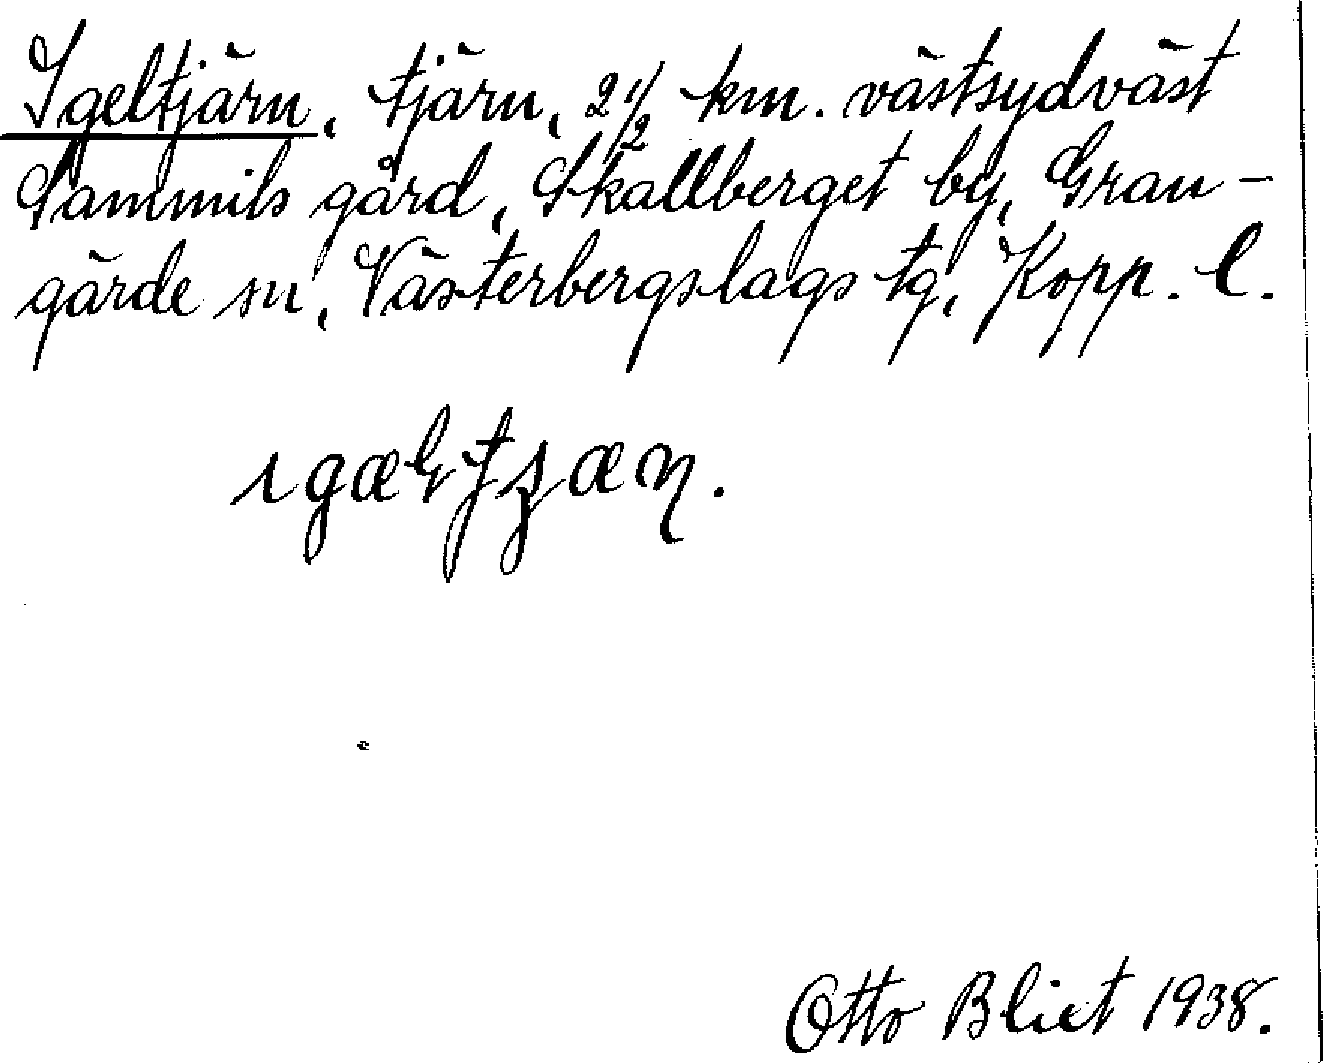 Igeltjärn, tjärn, 2 1/2 km. västsydväst
Sammils gård, Skallberget by, Gran-
gärde sn, Västerbergslags tg, Kopp. l.
Otto Bliet 1938.